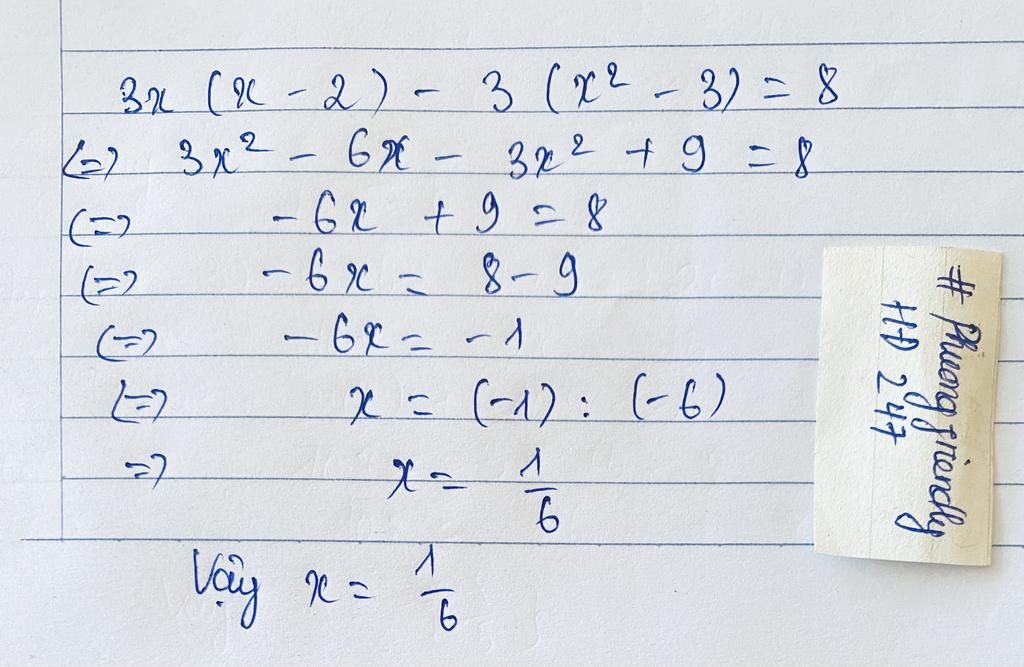 3x (x - 2) - 3 (x² - 3) = 8
(=) 3x² - 6x - 3x² + 9 = 8
(=) - 6x + 9 = 8
(=) - 6x = 8 - 9
(=) - 6x = - 1
(=) x = (-1) : (-6)
=) x = 1/6
Vậy x = 1/6
# Phuong friendly
HĐ 247